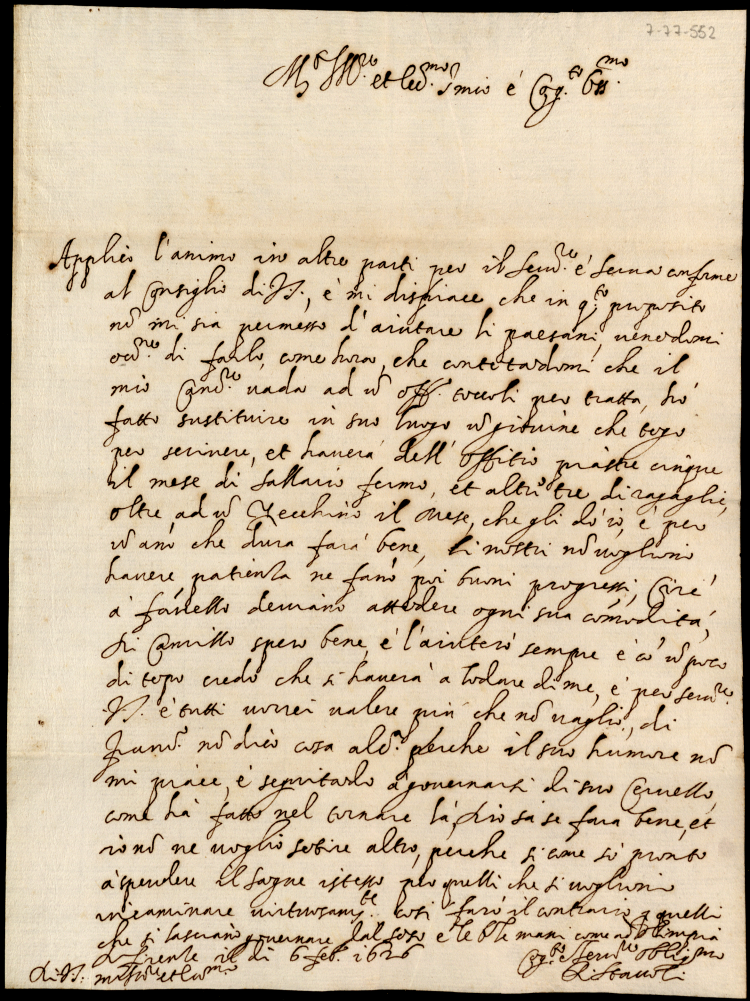 7-77-552
M.to Ill.re et Ecc.mo S.r mio è Cog.to
Applico l'animo in altre parti per il Serv.re è serva conforme
al Consiglio di V.S., è mi dispiace che in q.to proposito
nō mi sia permesso d'aiutare li paesani, venendomi
di farlo, come hora, che contētandomi che il
mio Canc.re vada ad ū off.o per tratta, hò
fatto sustituire in suo luogo ū giovine che tēgo
per scrivere, et haverà dell'offitio piastre cinque
il mese di sallario fermo, et altre tre di regaglie,
oltre ad ū Zecchino il Mese, che gli dò io, è per
ū año che dura farà bene, li nostri nō vogliono
havere patienza ne fanō poi buoni progressi, Cirè
à attēdere ogni sua cōmodità,
di Camillo spero bene, è l'aiuterò sempre è cō ū poco
di tēpo credo che si haverà à lodare di me, è per serv.re
V.S. è tutti vorrei valere più che nō vaglio, di
Franc.o nō dico cosa alc.a perche il suo humore nō
mi piace, è seguitādo à governarsi di suo Cervello,
come hà fatto nel tornare là, Dio sa se farà bene, et
io nō ne voglio sētire altro, perche si come sō pronto
à spēdere il sāgue istesso per quelli che si vogliono
incaminare virtuosam.te così farò il contrario à quelli
che si lasciano governare dal senso è le mani come
di Firenze il dì 6 feb.o 1626
di V.S. m.to Ill.re et Ecc.ma
Cog.to è Serv.re Oblig.mo